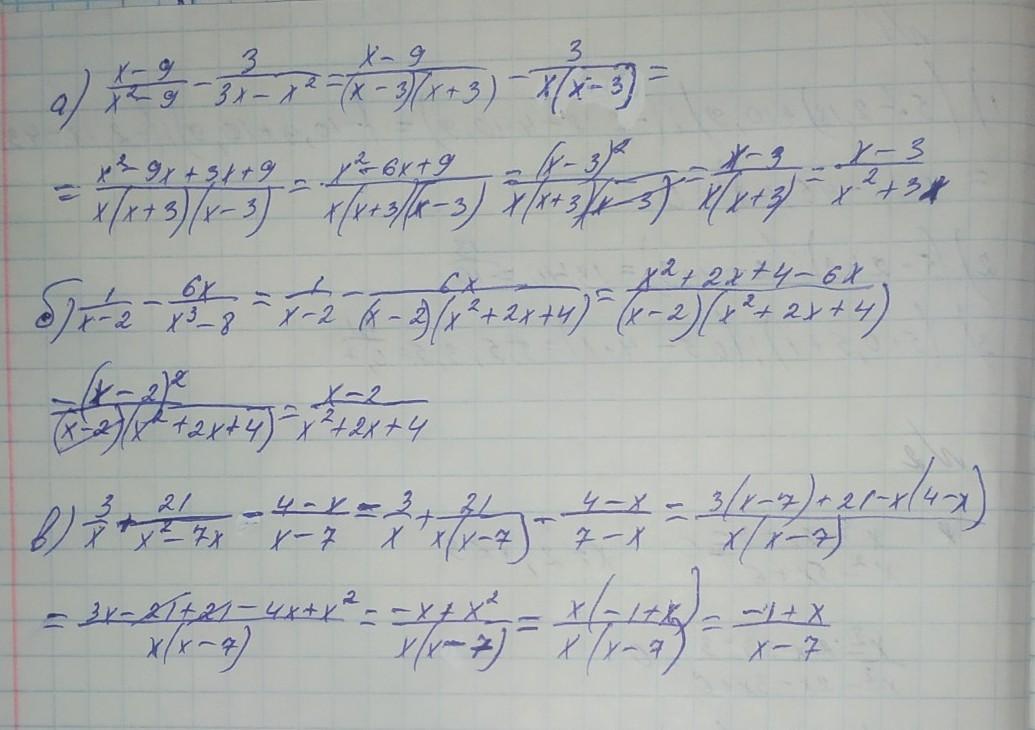 а) (x-9)/(x²-9) - 3/(3x-x²) = (x-9)/((x-3)(x+3)) - 3/(x(x-3)) =
= (x²-9x+3x+9)/(x(x+3)(x-3)) = (x²-6x+9)/(x(x+3)(x-3)) = (x-3)²/(x(x+3)(x-3)) = (x-3)/(x(x+3)) = (x-3)/(x²+3x)
б) 1/(x-2) - 6x/(x³-8) = 1/(x-2) - 6x/((x-2)(x²+2x+4)) = (x²+2x+4-6x)/((x-2)(x²+2x+4))
= (x-2)²/((x-2)(x²+2x+4)) = (x-2)/(x²+2x+4)
в) 3/x + 21/(x²-7x) - (4-x)/(x-7) = 3/x + 21/(x(x-7)) - (4-x)/(7-x) = (3(x-7)+21-x(4-x))/(x(x-7))
= (3x-21+21-4x+x²)/(x(x-7)) = (-x+x²)/(x(x-7)) = x(-1+x)/(x(x-7)) = (-1+x)/(x-7)